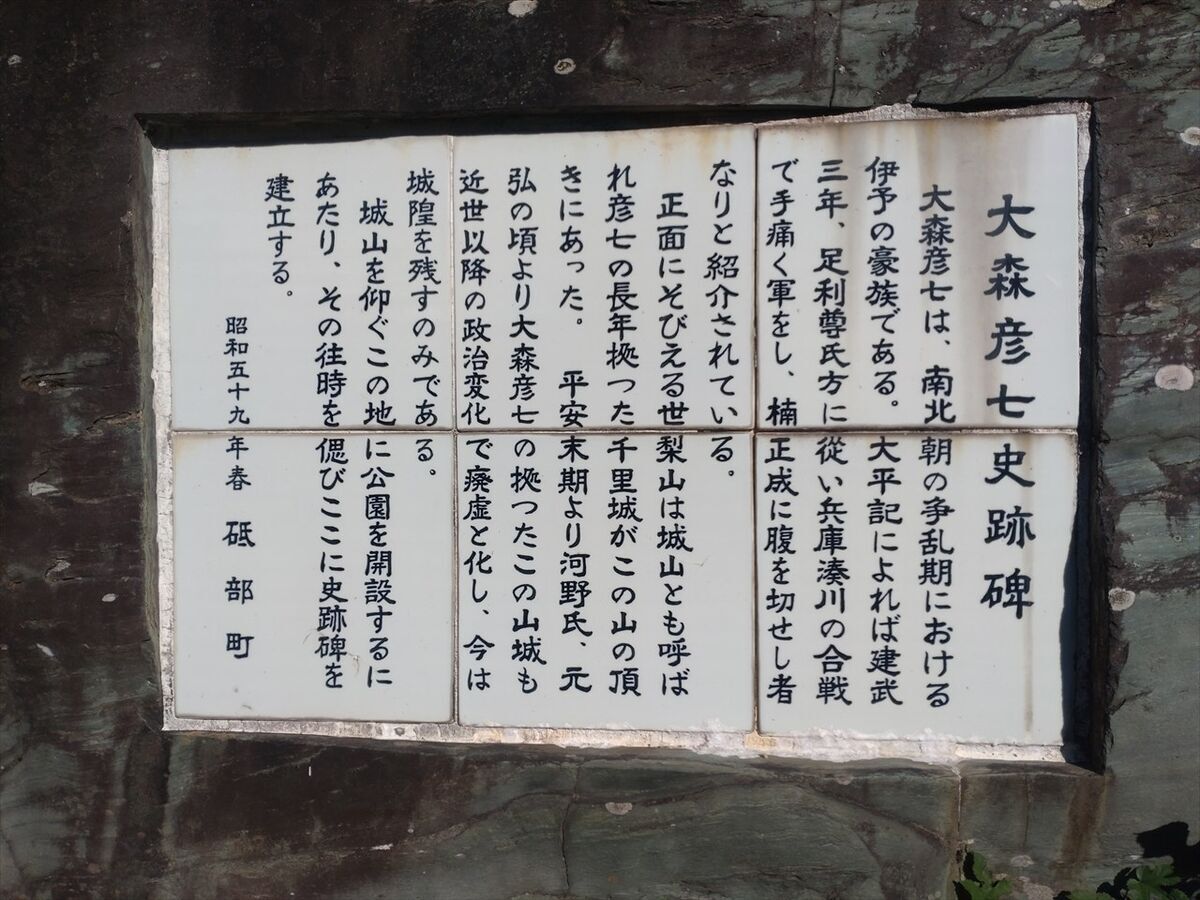 大森彦七史跡碑
大森彦七は、南北朝の争乱期における
伊予の豪族である。大平記によれば建武
三年、足利尊氏方に従い兵庫湊川の合戦
で手痛く軍をし、楠正成に腹を切せし者
なりと紹介されている。
正面にそびえる世梨山は城山とも呼ば
れ彦七の長年拠つた千里城がこの山の頂
きにあった。平安末期より河野氏、元
弘の頃より大森彦七の拠つたこの山城も
近世以降の政治変化で廃虚と化し、今は
城隍を残すのみである。
城山を仰ぐこの地に公園を開設するに
あたり、その往時を偲びここに史跡碑を
建立する。
昭和五十九年春 砥部町